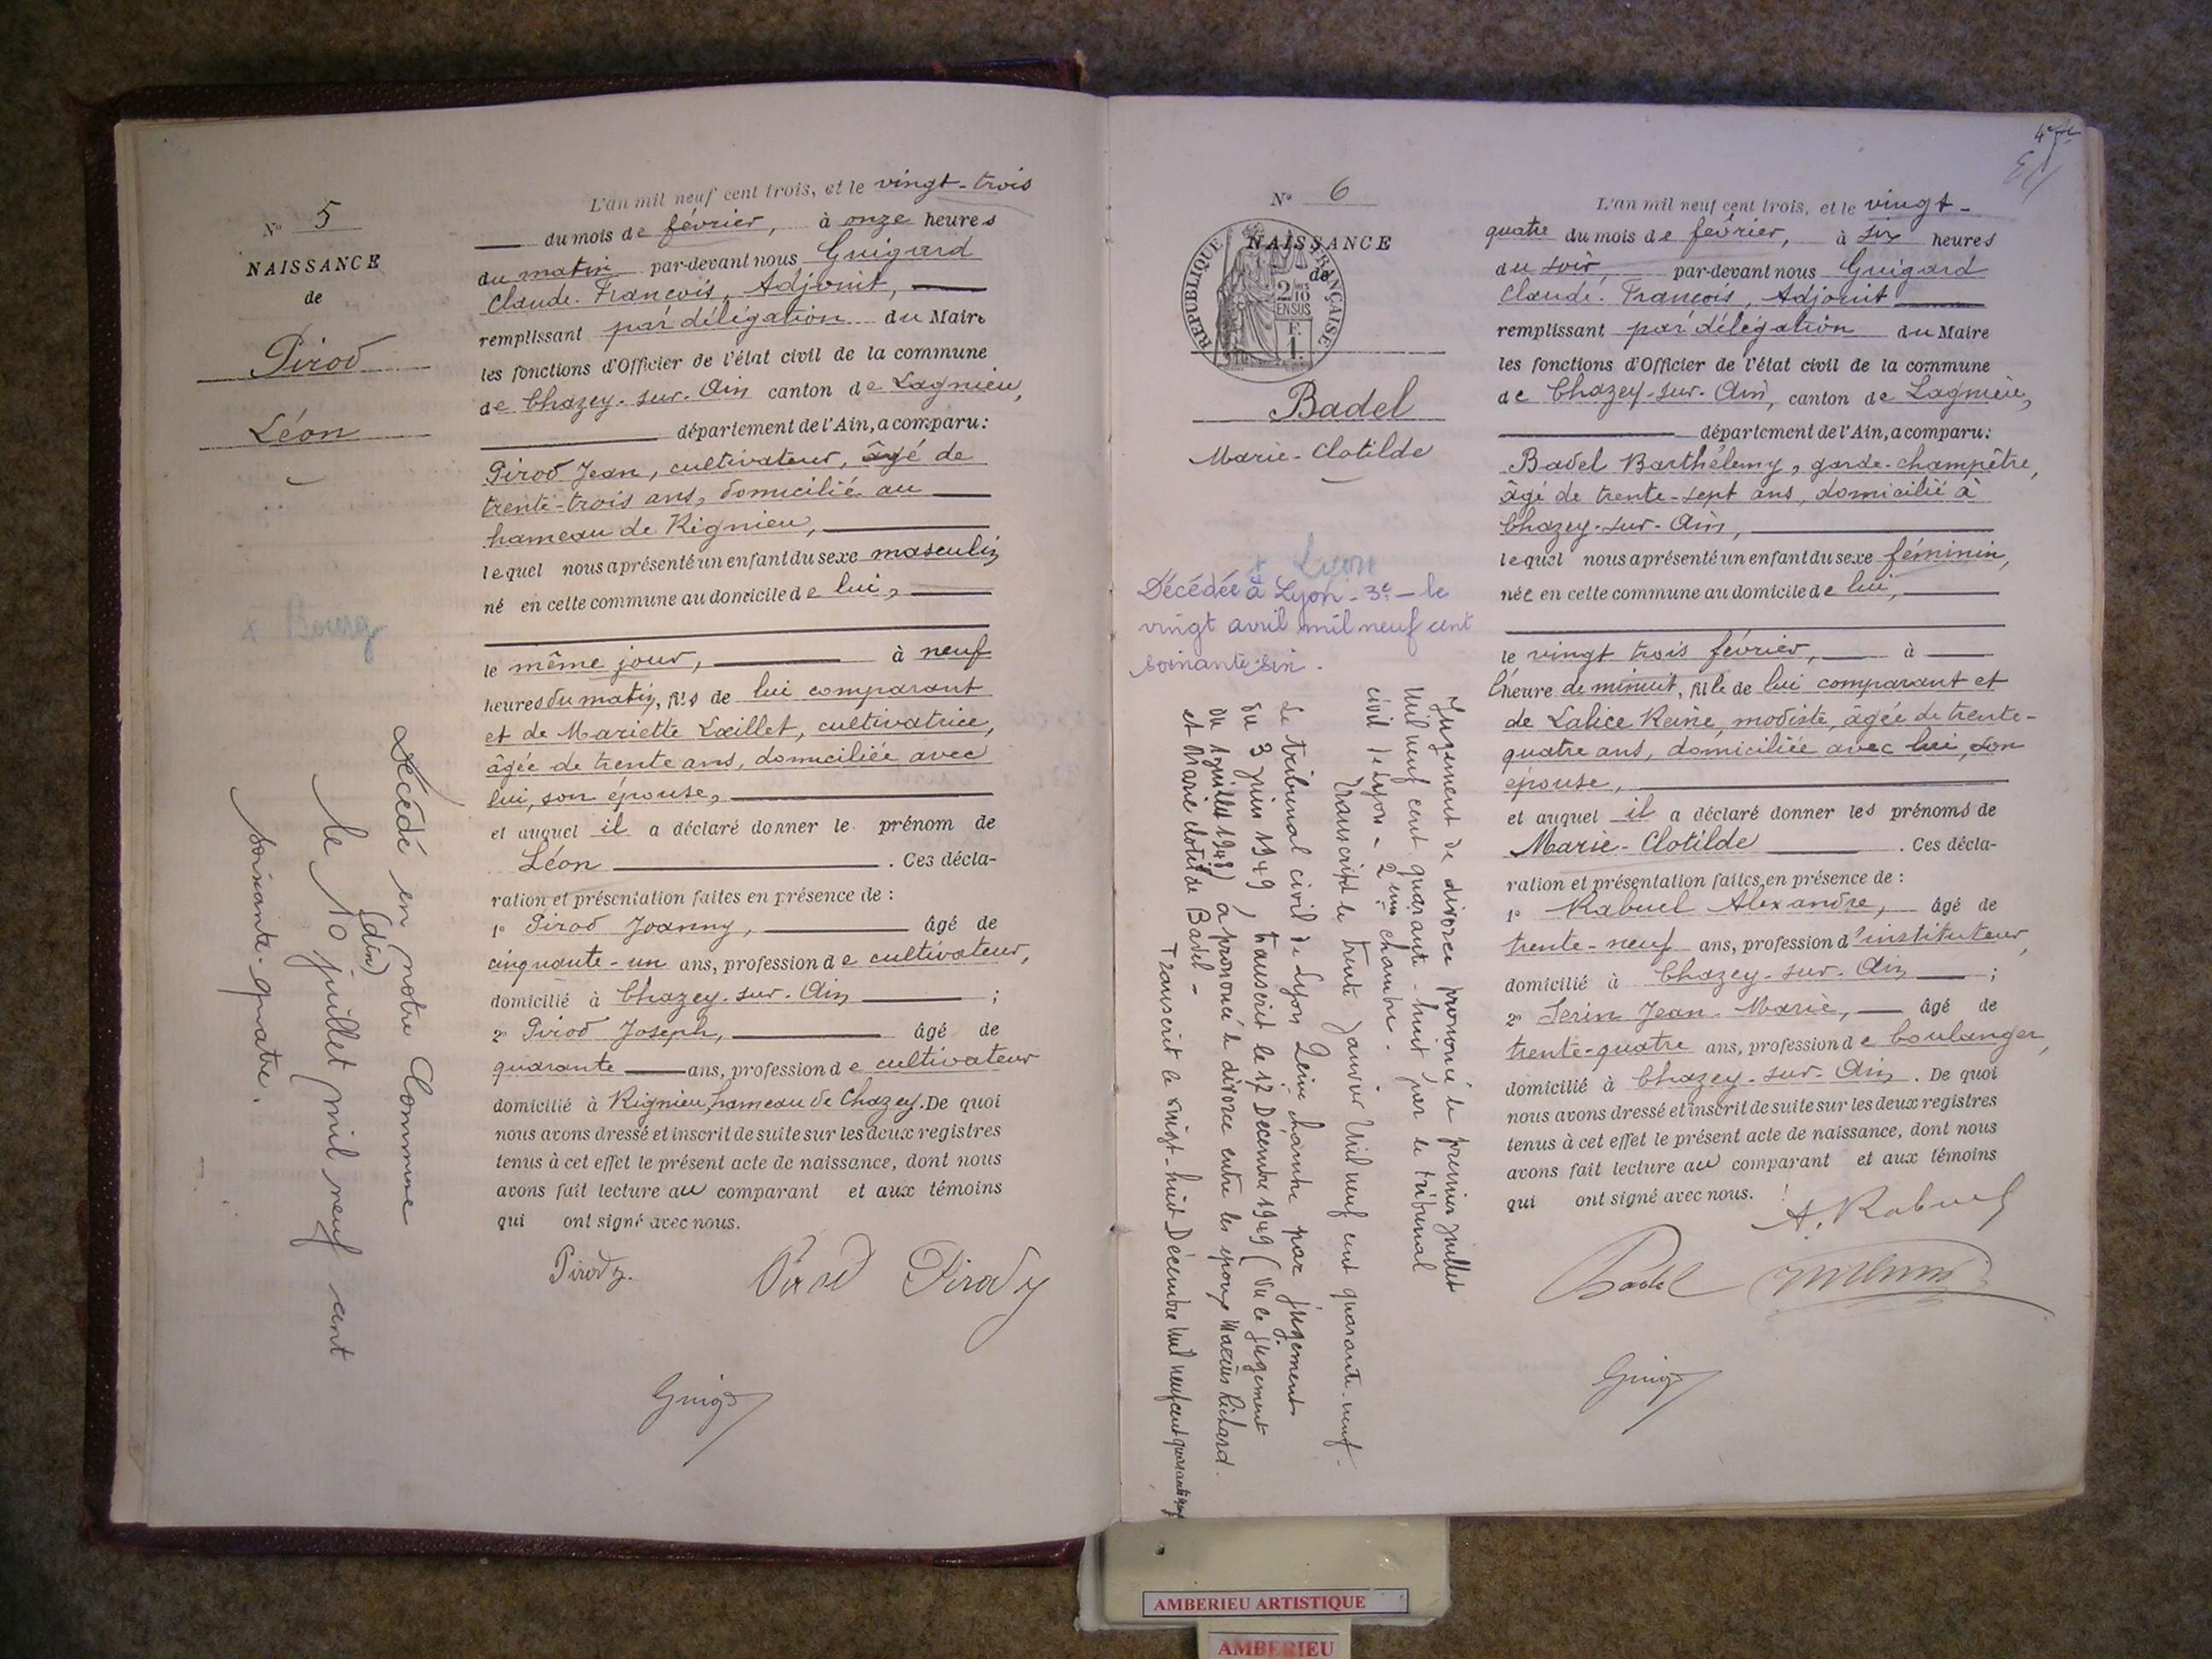 N° 5
NAISSANCE
de
Pirod
Léon
x Bourg
Décédé en notre Commune
le 10 juillet mil neuf cent
(dix)
soixante-quatre.
L'an mil neuf cent trois, et le vingt-trois
du mois de février, à onze heures
du matin par-devant nous Guigard
Claude-François, Adjoint,
remplissant par délégation du Maire
les fonctions d'Officier de l'état civil de la commune
de Chazey-sur-Ain canton de Lagnieu,
département de l'Ain, a comparu:
Pirod Jean, cultivateur, âgé de
trente-trois ans, domicilié au
hameau de Rignieu,
lequel nous a présenté un enfant du sexe masculin
né en cette commune au domicile de lui,
le même jour, à neuf
heures du matin, fils de lui comparant
et de Mariette Lœillet, cultivatrice,
âgée de trente ans, domiciliée avec
lui, son épouse,
et auquel il a déclaré donner le prénom de
Léon . Ces décla-
ration et présentation faites en présence de :
1° Pirod Joanny, âgé de
cinquante-un ans, profession de cultivateur,
domicilié à Chazey-sur-Ain ;
2° Pirod Joseph, âgé de
quarante ans, profession de cultivateur
domicilié à Rignieu, hameau de Chazey. De quoi
nous avons dressé et inscrit de suite sur les deux registres
tenus à cet effet le présent acte de naissance, dont nous
avons fait lecture au comparant et aux témoins
qui ont signé avec nous.
Pirod Pirod
Guigd
4e
N° 6
NAISSANCE
de
REPUBLIQUE FRANÇAISE
2/10 EN SUS
Badel
Marie-Clotilde
x Lyon
Décédée à Lyon-3e-le
vingt avril mil neuf cent
soixante-six.
Jugement de divorce prononcé le premier juillet
Mil neuf cent quarante-huit par le tribunal
civil de Lyon - 2eme chambre.
Transcript le trente Janvier Mil neuf cent quarante-neuf.
Le tribunal civil de Lyon 2eme chambre par jugement
du 3 juin 1949, transcrit le 17 Decembre 1949 (vu le jugement
du 1 juillet 1948) a prononcé le divorce entre les époux Marius Richard
et Marie clotilde Badel -
Transcrit le vingt-huit Décembre Mil neuf cent quarante neuf
L'an mil neuf cent trois, et le vingt-
quatre du mois de février, à six heures
du soir, par-devant nous Guigard
Claude-François, Adjoint
remplissant par délégation du Maire
les fonctions d'Officier de l'état civil de la commune
de Chazey-sur-Ain, canton de Lagnieu,
département de l'Ain, a comparu:
Badel Barthélemy, garde-champêtre,
âgé de trente-sept ans, domicilié à
Chazey-sur-Ain,
lequel nous a présenté un enfant du sexe féminin,
née en cette commune au domicile de lui,
le vingt trois février, à
l'heure de minuit, fille de lui comparant et
de Lalice Reine, modiste, âgée de trente-
quatre ans, domiciliée avec lui, son
épouse,
et auquel il a déclaré donner les prénoms de
Marie-Clotilde . Ces décla-
ration et présentation faites en présence de :
1° Rabuel Alexandre, âgé de
trente-neuf ans, profession d'instituteur,
domicilié à Chazey-sur-Ain ;
2° Serin Jean-Marie, âgé de
trente-quatre ans, profession de boulanger,
domicilié à Chazey-sur-Ain. De quoi
nous avons dressé et inscrit de suite sur les deux registres
tenus à cet effet le présent acte de naissance, dont nous
avons fait lecture au comparant et aux témoins
qui ont signé avec nous.
A. Rabuel
Badel
Guigd
AMBERIEU ARTISTIQUE
AMBERIEU